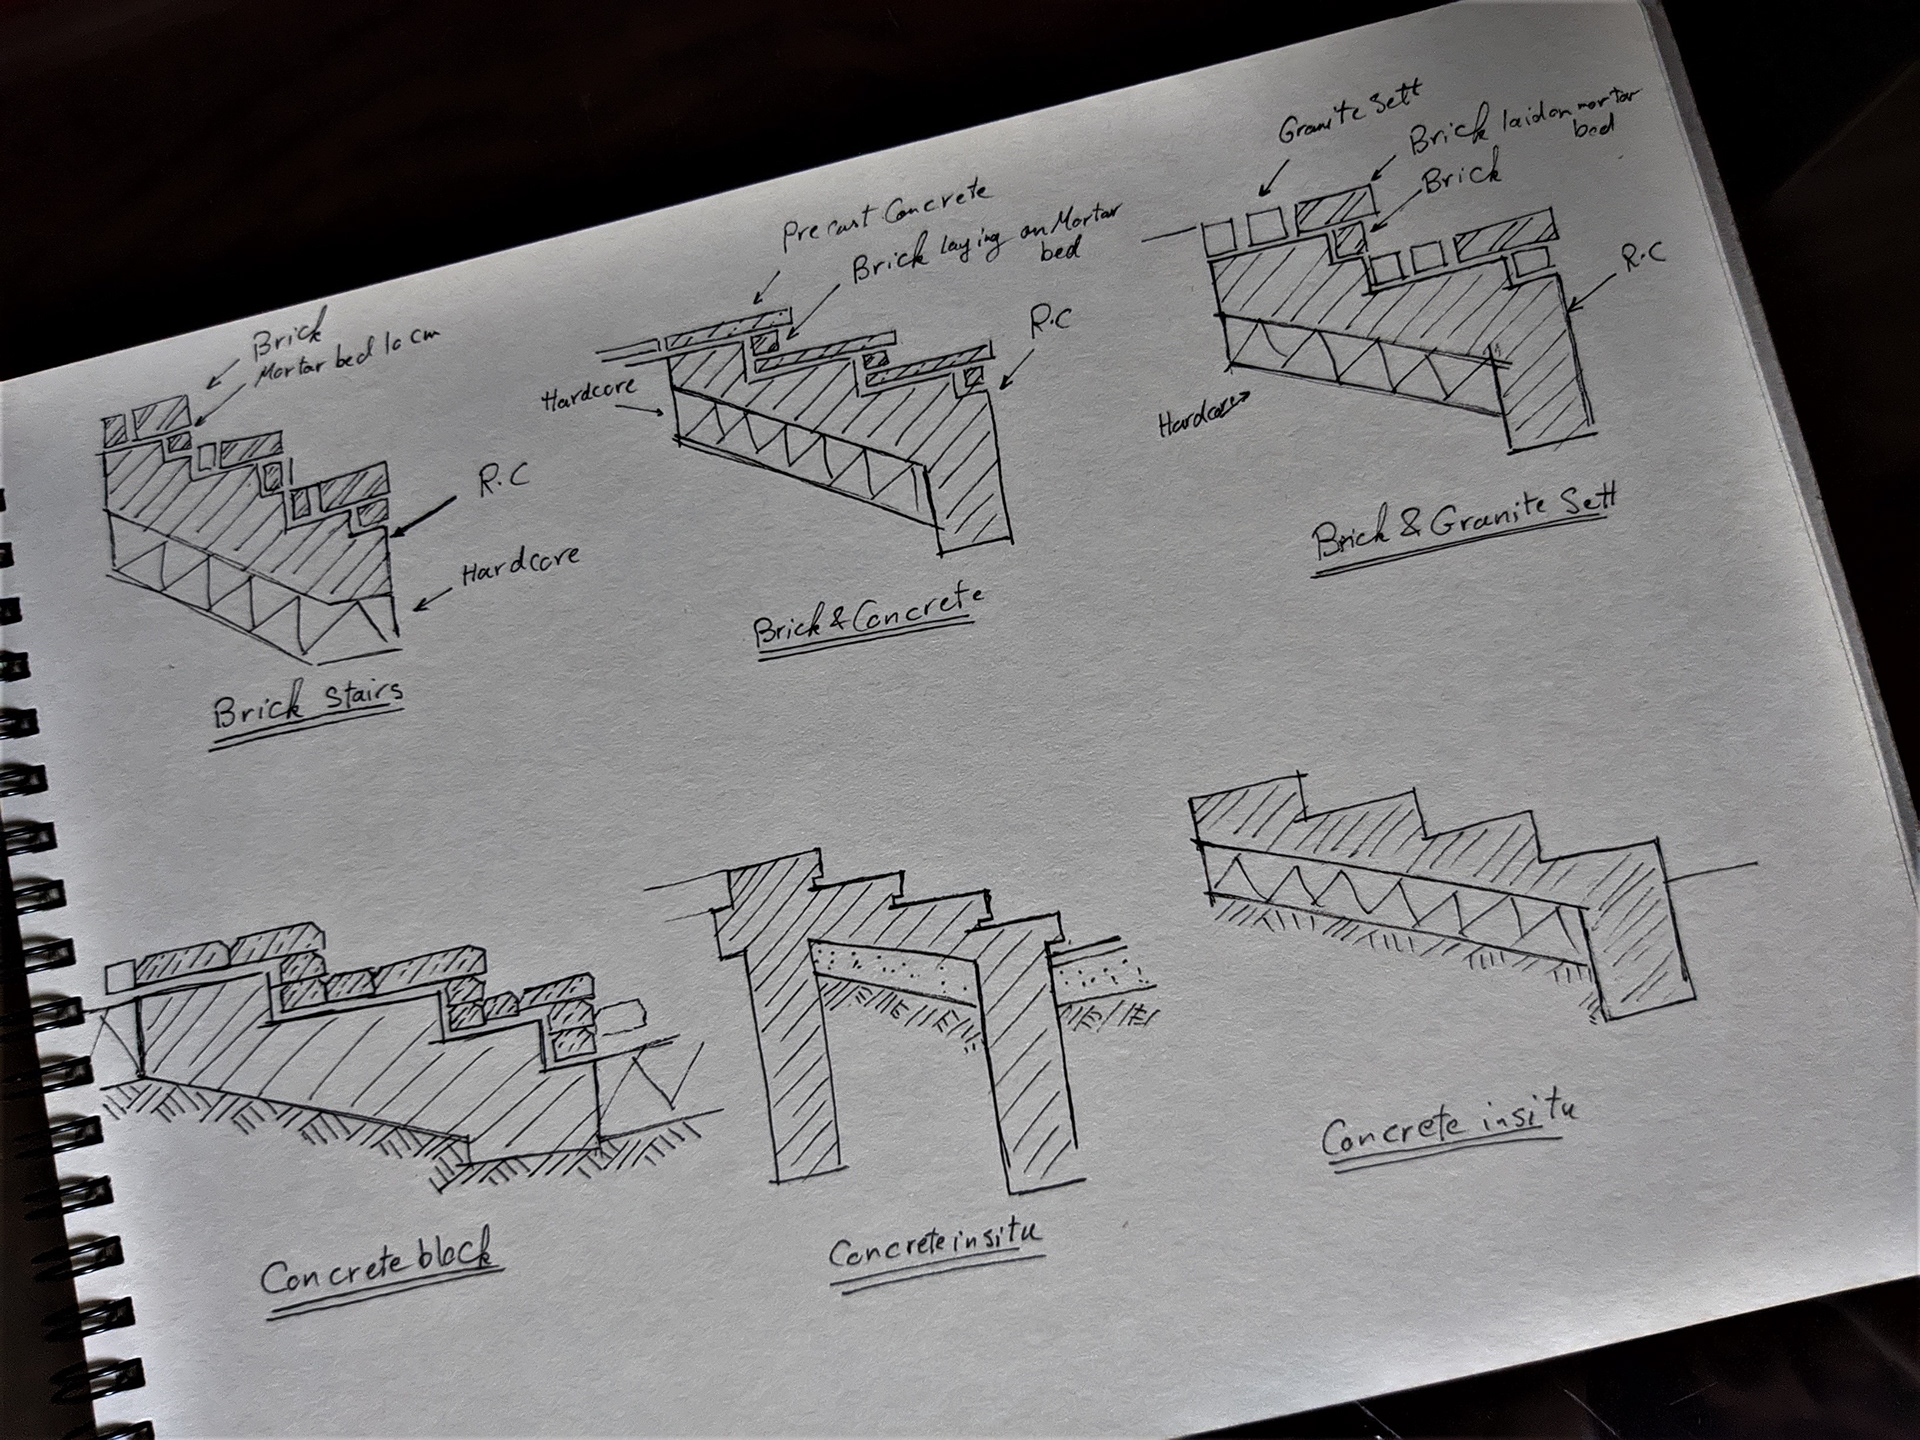 Brick
Mortar bed 10 cm
R.C
Hardcore
Brick Stairs
Precast Concrete
Brick laying on Mortar
bed
R.C
Hardcore
Brick & Concrete
Granite Sett
Brick laid on mortar
bed
Brick
R.C
Hardcore
Brick & Granite Sett
Concrete block
Concrete insitu
Concrete insitu